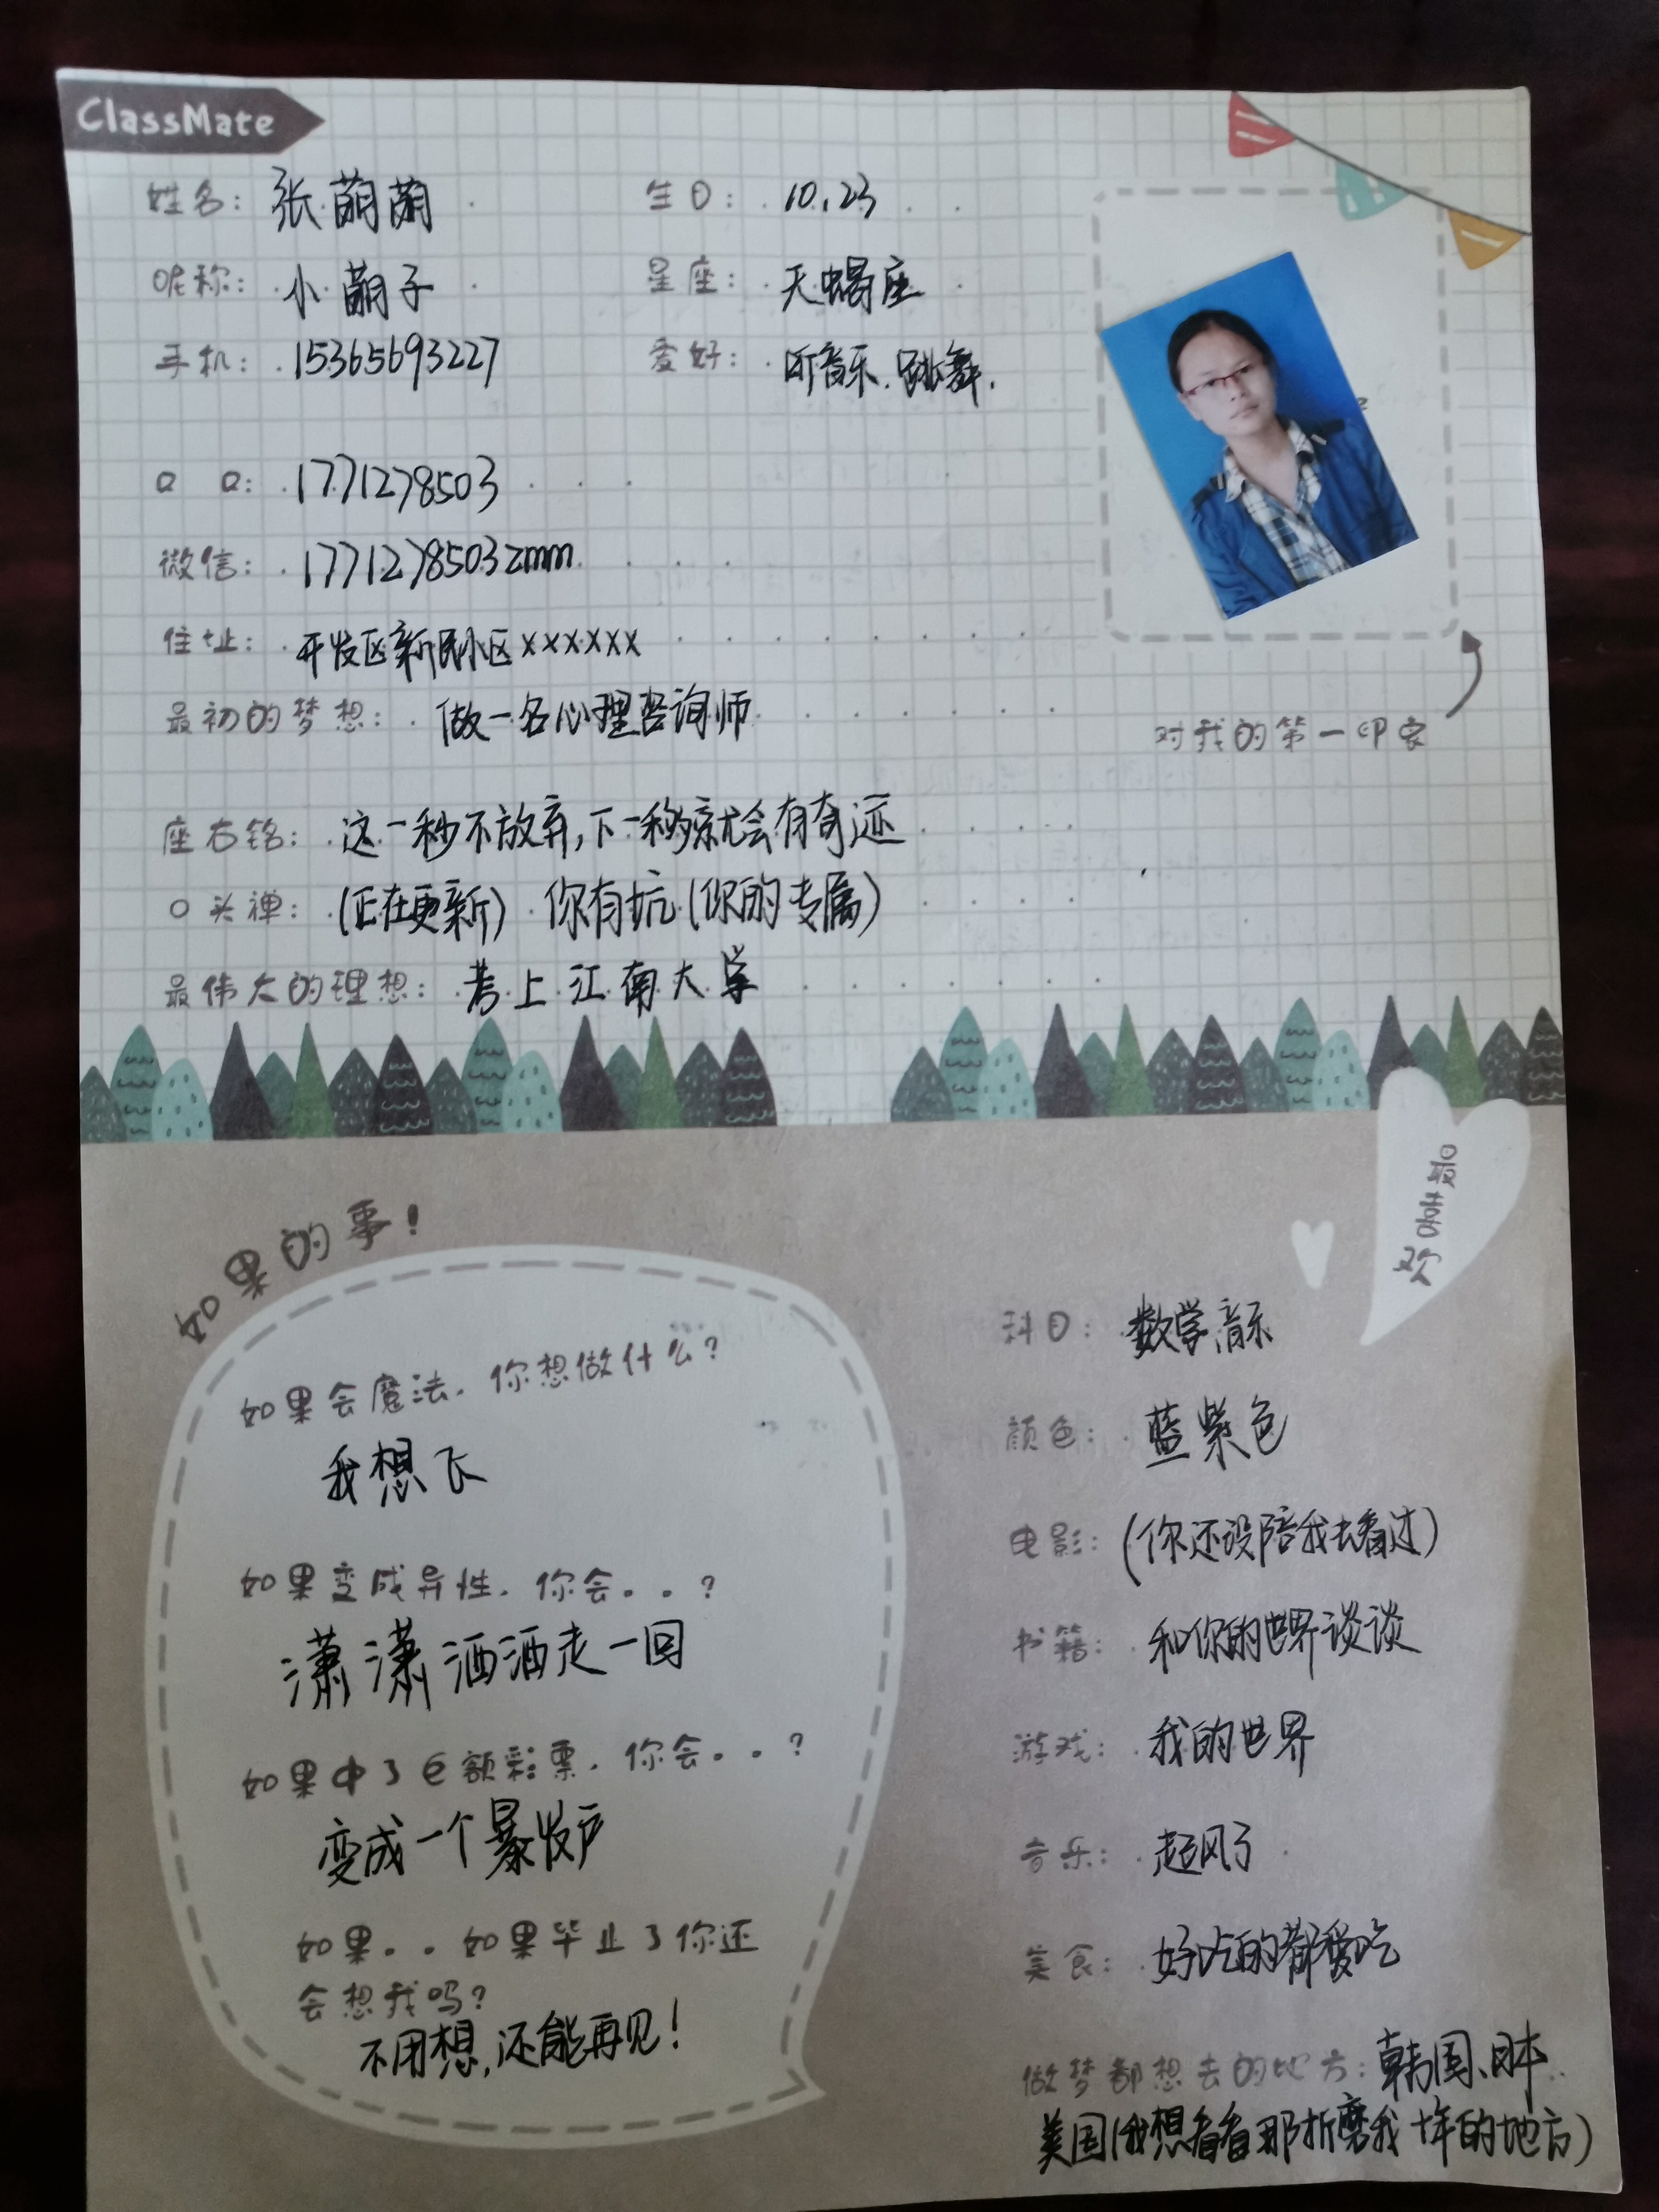 ClassMate
姓名: 张萌萌
生日: 10.23
昵称: 小萌子
星座: 天蝎座
手机: 15365693227
爱好: 听音乐.跳舞.
QQ: 1771278503
微信: 1771278503zmm
住址: 开发区新民小区××××××
最初的梦想: 做一名心理咨询师
对我的第一印象
座右铭: 这一秒不放弃,下一秒就会有奇迹
口头禅: (正在更新) 你有坑(你的专属)
最伟大的理想: 考上江南大学
最喜欢
如果的事!
如果会魔法.你想做什么?
我想飞
如果变成异性.你会...?
潇潇洒洒走一回
如果中了巨额彩票.你会...?
变成一个暴发户
如果..如果毕业了你还
会想我吗?
不用想,还能再见!
科目: 数学,音乐
颜色: 蓝紫色
电影: (你还没陪我去看过)
书籍: 和你的世界谈谈
游戏: 我的世界
音乐: 起风了
美食: 好吃的都爱吃
做梦都想去的地方: 韩国、日本
美国(我想看看那折磨我十年的地方)